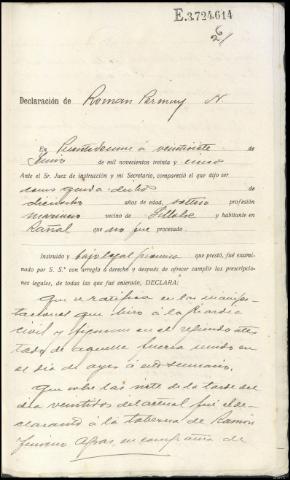 E.3.724.614
Declaración de Roman Permuy
En Puentedeume á veintisiete de
Junio de mil novecientos treinta y cinco
Ante el Sr. Juez de instrucción y mi Secretario, compareció el que dijo ser
como queda dicho de
años de edad, soltero profesión
vecino de y habitante en
que no fue procesado.
Instruido y bajo legal promesa que prestó, fué exami-
nado por S. S.ª con arreglo á derecho y después de ofrecer cumplir las prescripcio-
nes legales, de todas las que fué enterado, DECLARA:
Que se ratifica en las manifes-
taciones que hizo á la Guardia
civil y que constan en el referido ates-
tado de aquella fuerza unido en
el dia de ayer á este sumario.
Que sobre las siete de la tarde del
dia veintidos del actual fué el de-
clarante á la taberna de Ramón
en compañia de